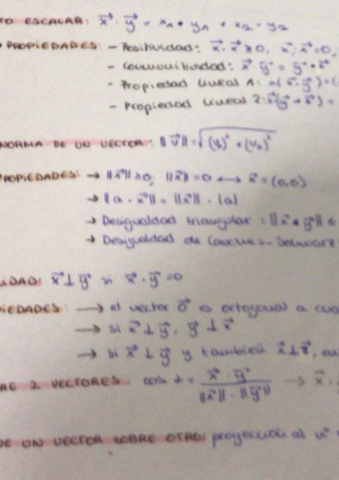 TO ESCALAR: x⃗ · y⃗ = x₁ · y₁ + x₂ · y₂
PROPIEDADES: - Positividad: x⃗ · x⃗ ≥ 0, x⃗ · x⃗ = 0,
- Conmutatividad: x⃗ · y⃗ = y⃗ · x⃗
- Propiedad Lineal 1: a(x⃗ · y⃗) = (
- Propiedad Lineal 2: x⃗(y⃗ + ) =
NORMA DE UN VECTOR: ||v⃗|| = √(v₁)² + (v₂)²
PROPIEDADES: → ||x⃗|| ≥ 0, ||x⃗|| = 0 ↔ x⃗ = (0,0)
→ ||a · x⃗|| = ||x⃗|| · |a|
→ Desigualdad triangular: ||x⃗ + y⃗|| ≤
→ Desigualdad de Cauchy-Schwarz
LIDAD: x⃗ ⊥ y⃗ si x⃗ · y⃗ = 0
IEDADES: → el vector 0⃗ o ortogonal a cua
→ si x⃗ ⊥ y⃗, y⃗ ⊥ x⃗
→ si x⃗ ⊥ y⃗ y también x⃗ ⊥
RE 2 VECTORES: cos α = x⃗ · y⃗ / ||x⃗|| · ||y⃗|| → x⃗ ·
DE UN VECTOR SOBRE OTRO: proyección al